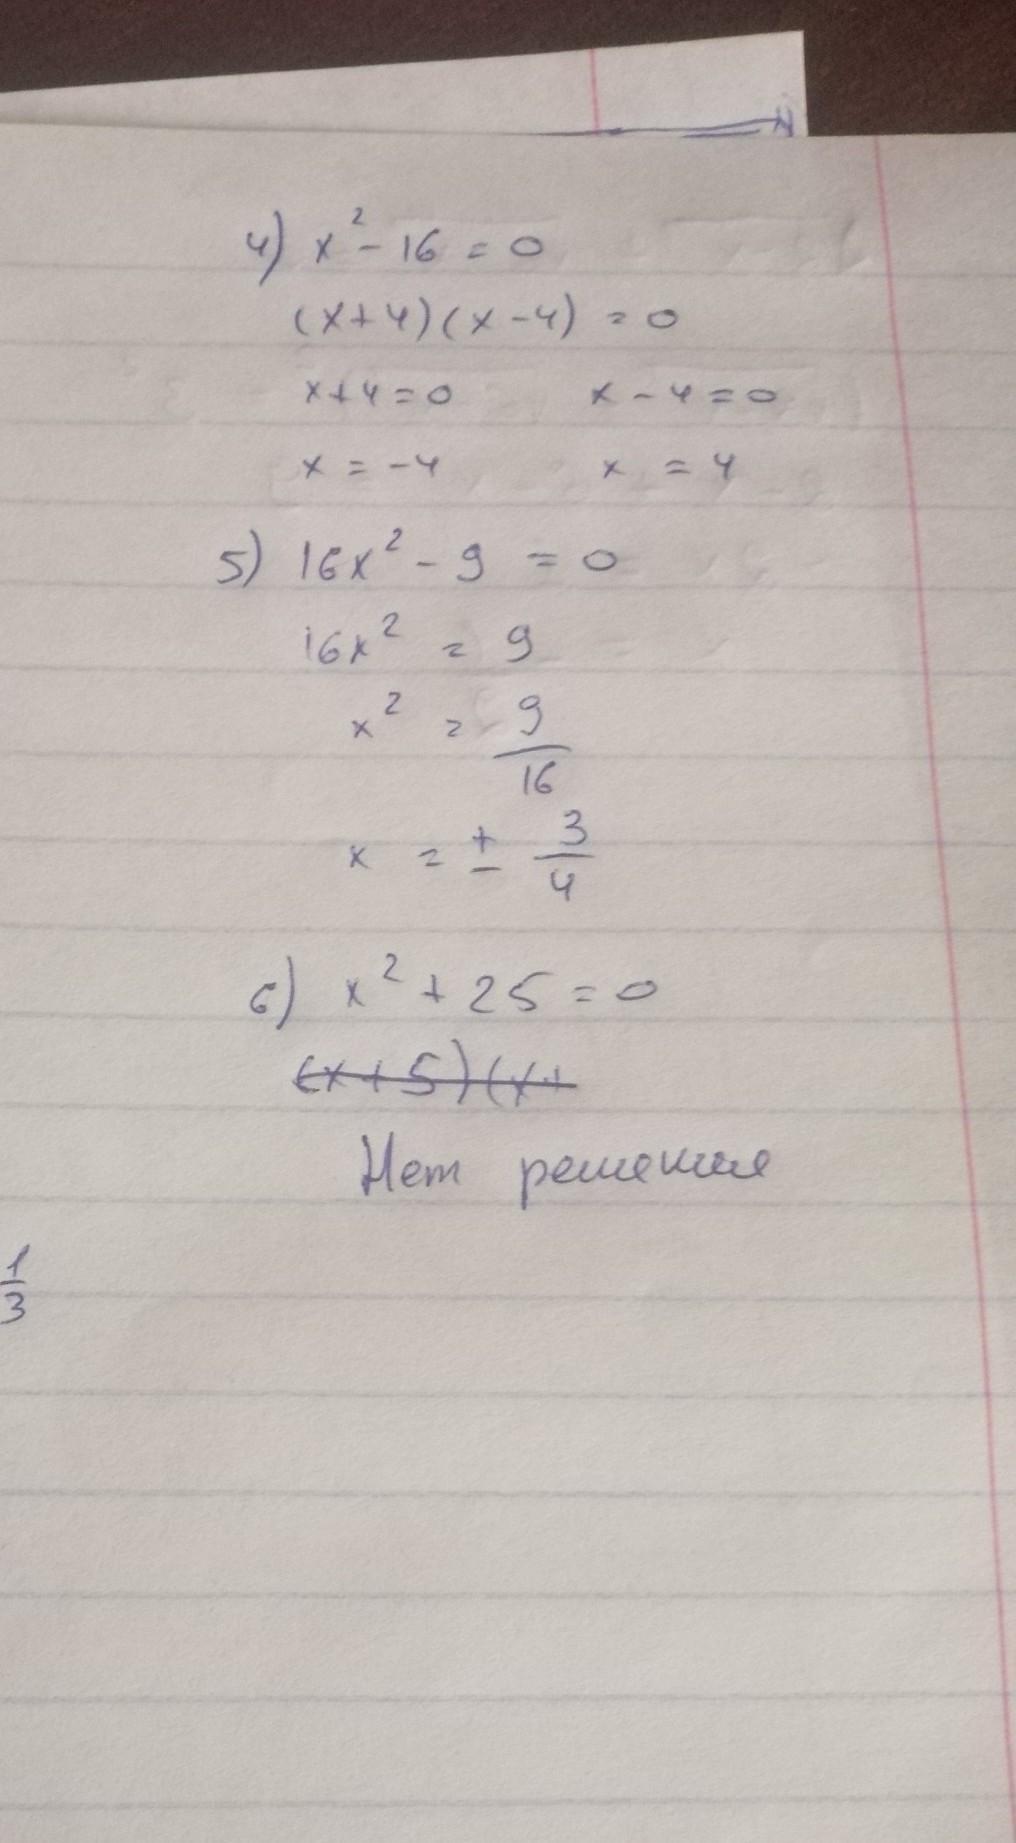 4) x² - 16 = 0
(x+4)(x-4) = 0
x+4=0 x-4=0
x = -4 x = 4
5) 16x² - 9 = 0
16x² = 9
x² = 9/16
x = ± 3/4
6) x² + 25 = 0
(x+5)(x+
Нет решения
1/3